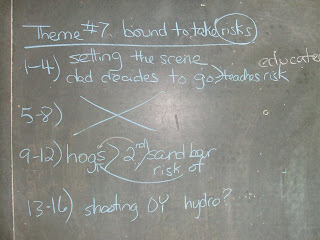 Theme #7. bound to take risks
1-4) setting the scene educates
dad decides to go > teaches risk
5-8)
9-12) hogs > 2nd sand bar
risk of
13-16) shooting OY hydro?